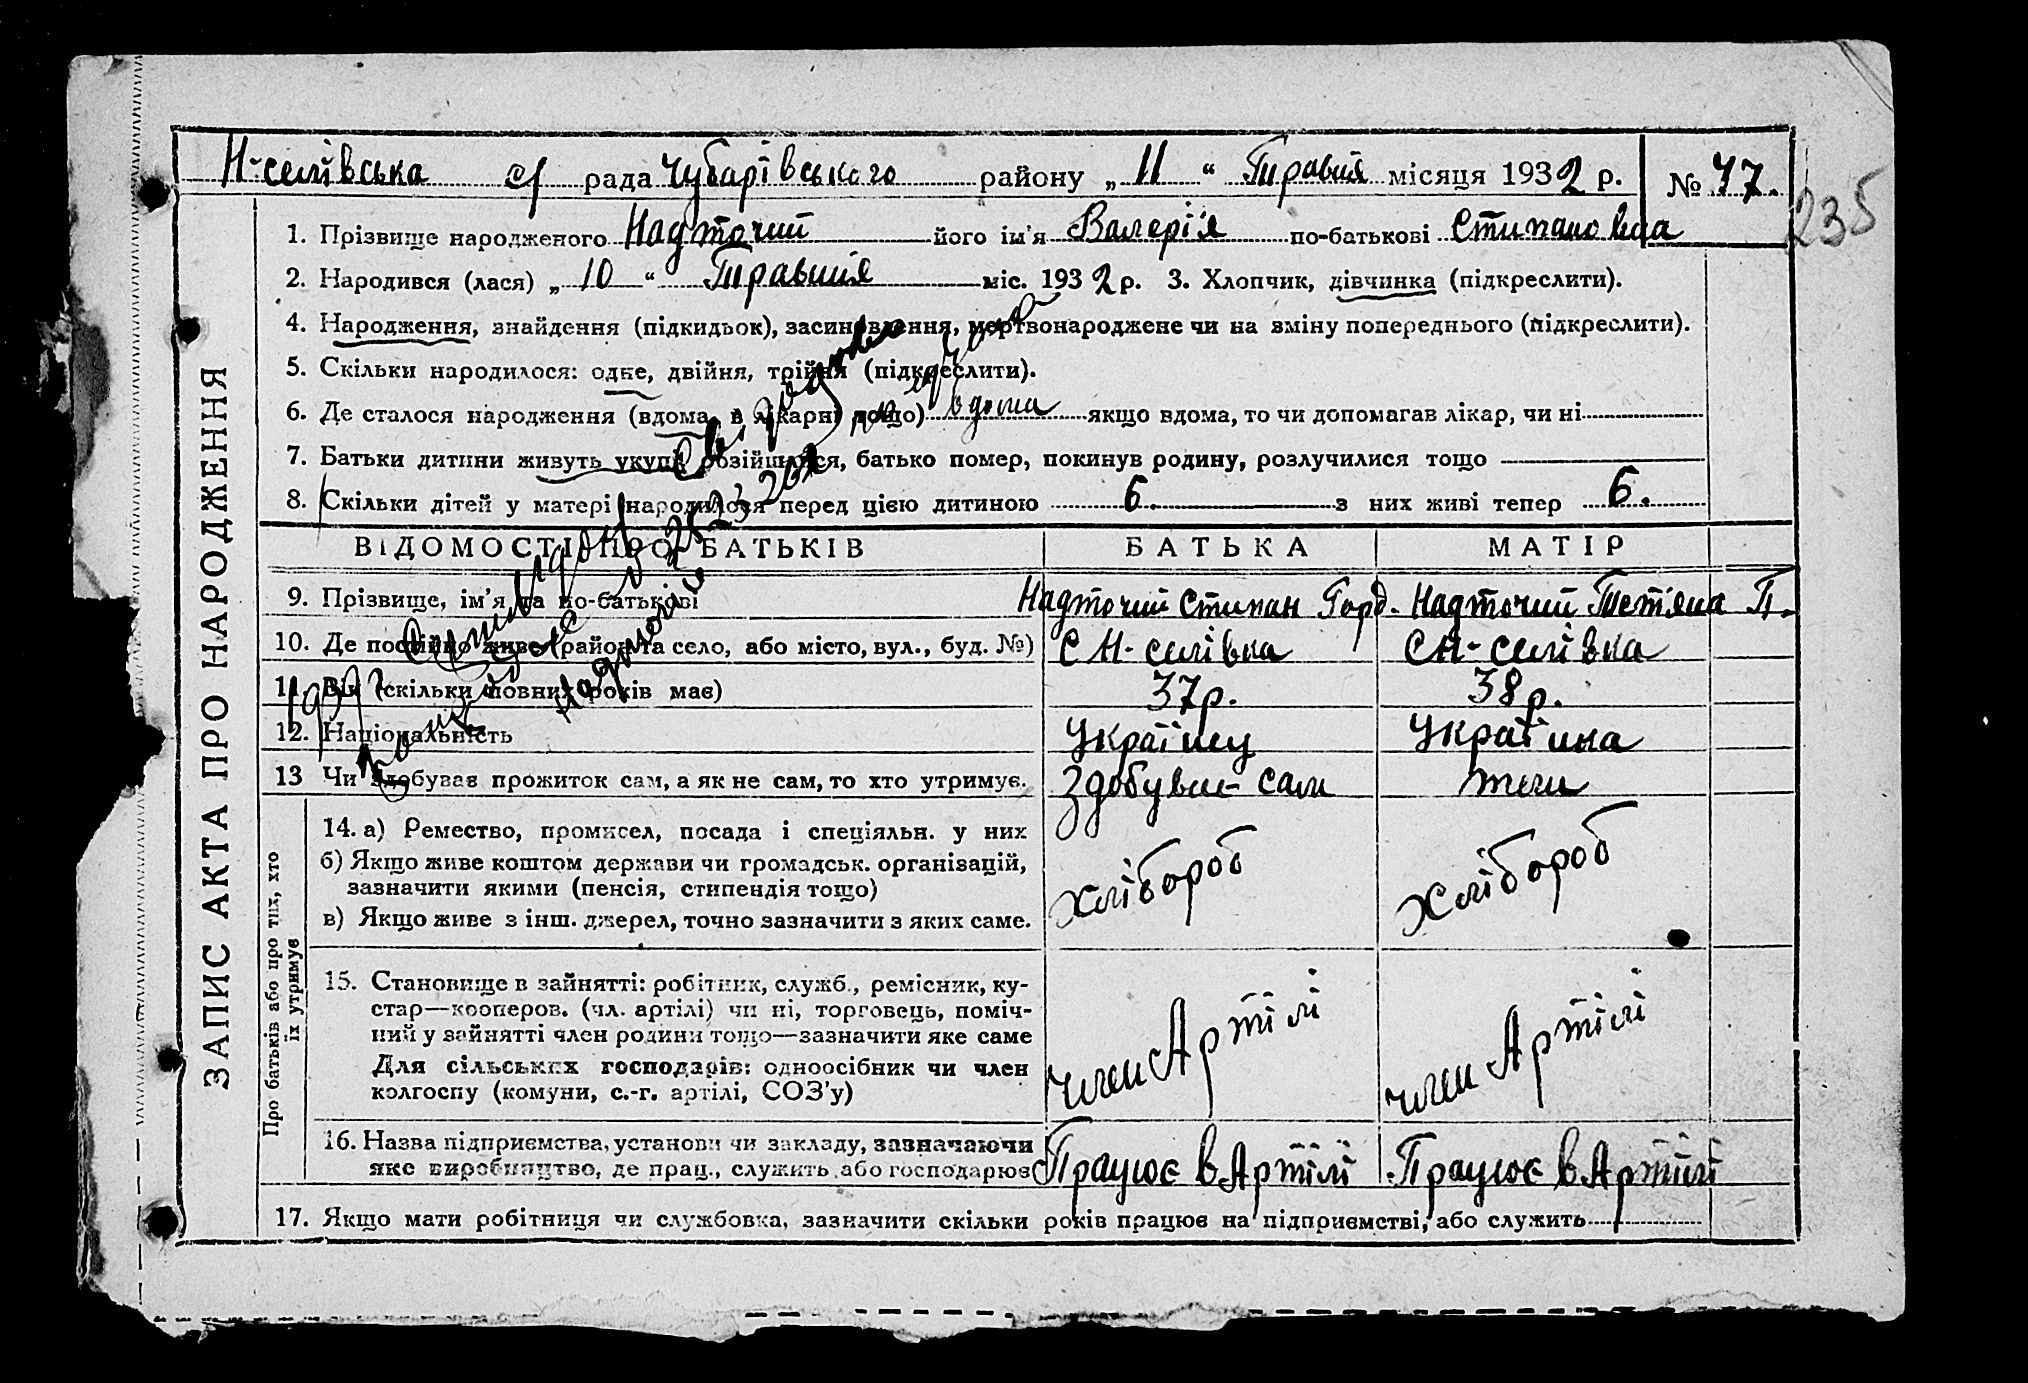 Н-селівська с/ рада Чубарівського району „ 11 “ Травня місяця 1932 р. № 77.
235
1. Прізвище народженого Надточий його ім'я Валерія по-батькові Стипановна
2. Народився (лася) „ 10 “ Травння міс. 1932 р. 3. Хлопчик, дівчинка (підкреслити).
4. Народження, знайдення (підкидьок), засиновлення, мертвонароджене чи на зміну попереднього (підкреслити).
5. Скільки народилося: одне, двійня, трійня (підкреслити).
6. Де сталося народження (вдома, в лікарні тощо) вдома якщо вдома, то чи допомагав лікар, чи ні
7. Батьки дитини живуть укупі, розійшлися, батько помер, покинув родину, розлучилися тощо
8. Скільки дітей у матері народилося перед цією дитиною 6. з них живі тепер 6.
ВІДОМОСТІ ПРО БАТЬКІВ БАТЬКА МАТІР
9. Прізвище, ім'я та по-батькові Надточий Стипан Горд. Надточий Тетяна П.
10. Де постійно живе (район та село, або місто, вул., буд. №) С Н-селівка С Н-селівка
11. Вік (скільки повних років має) 37р. 38р.
12. Національність Українц Українка
13 Чи здобував прожиток сам, а як не сам, то хто утримує. Здобуває сам теж
14. а) Ремество, промисел, посада і спеціяльн. у них
б) Якщо живе коштом держави чи громадськ. організацій,
зазначити якими (пенсія, стипендія тощо)
в) Якщо живе з інш. джерел, точно зазначити з яких саме.
хлібороб хлібороб
15. Становище в зайнятті: робітник, служб., ремісник, ку-
стар—кооперов. (чл. артілі) чи ні, торговець, поміч-
ний у зайнятті член родини тощо—зазначити яке саме
Для сільських господарів: одноосібник чи член
колгоспу (комуни, с.-г. артілі, СОЗ'у)
член Артілі член Артілі
16. Назва підприємства, установи чи закладу, зазначаючи
яке виробництво, де прац., служить або господарює
Працює в Артілі Працює в Артілі
17. Якщо мати робітниця чи службовка, зазначити скільки років працює на підприємстві, або служить
ЗАПИС АКТА ПРО НАРОДЖЕННЯ
Про батьків або про тих, хто
їх утримує